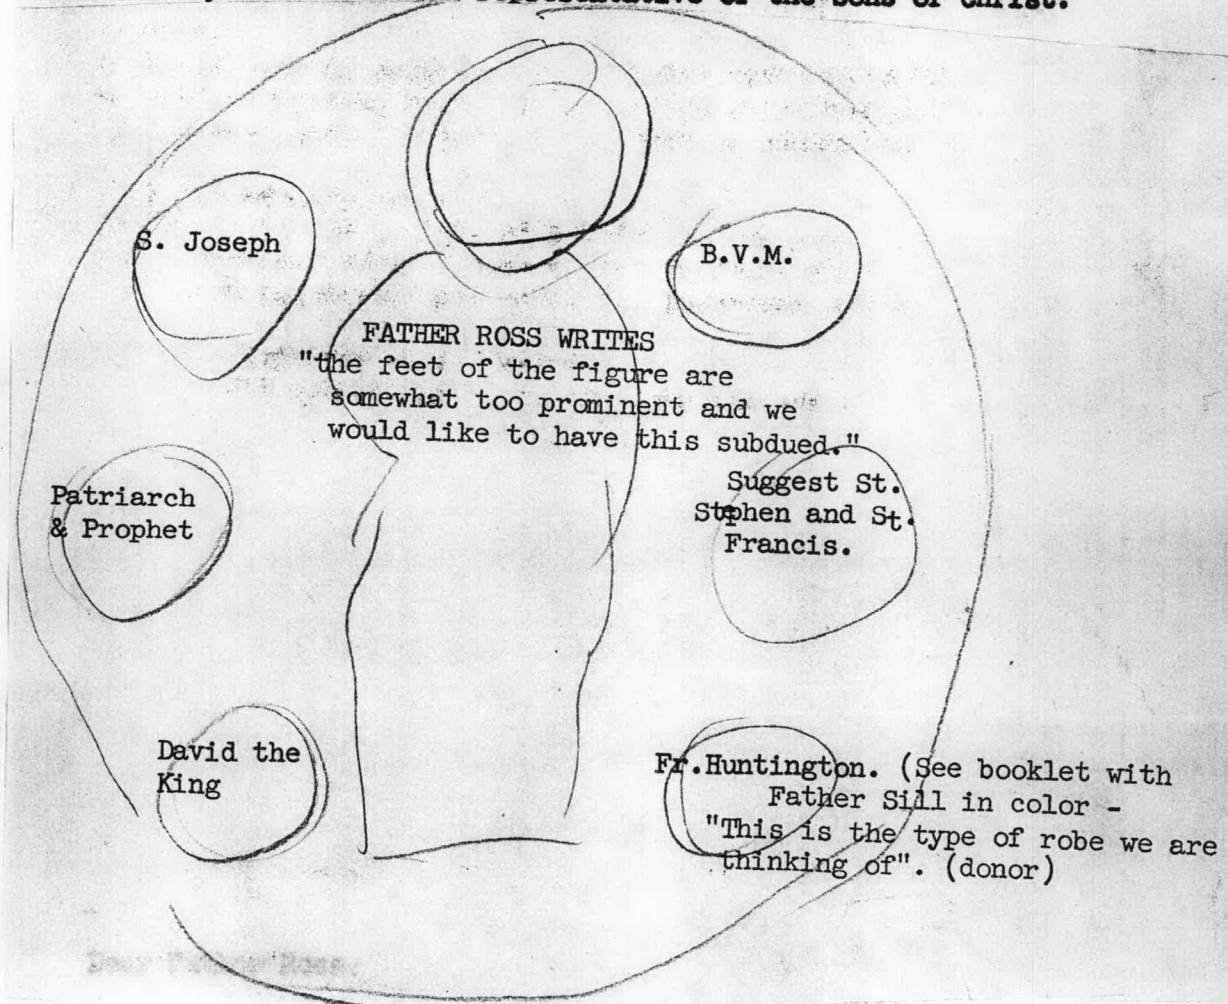 representative of the Sons of Christ.
S. Joseph
B.V.M.
FATHER ROSS WRITES
"the feet of the figure are
somewhat too prominent and we
would like to have this subdued."
Patriarch
& Prophet
Suggest St.
Stphen and St.
Francis.
David the
King
Fr.Huntington. (See booklet with
Father Sill in color -
"This is the type of robe we are
thinking of". (donor)
Dear Father Ross: